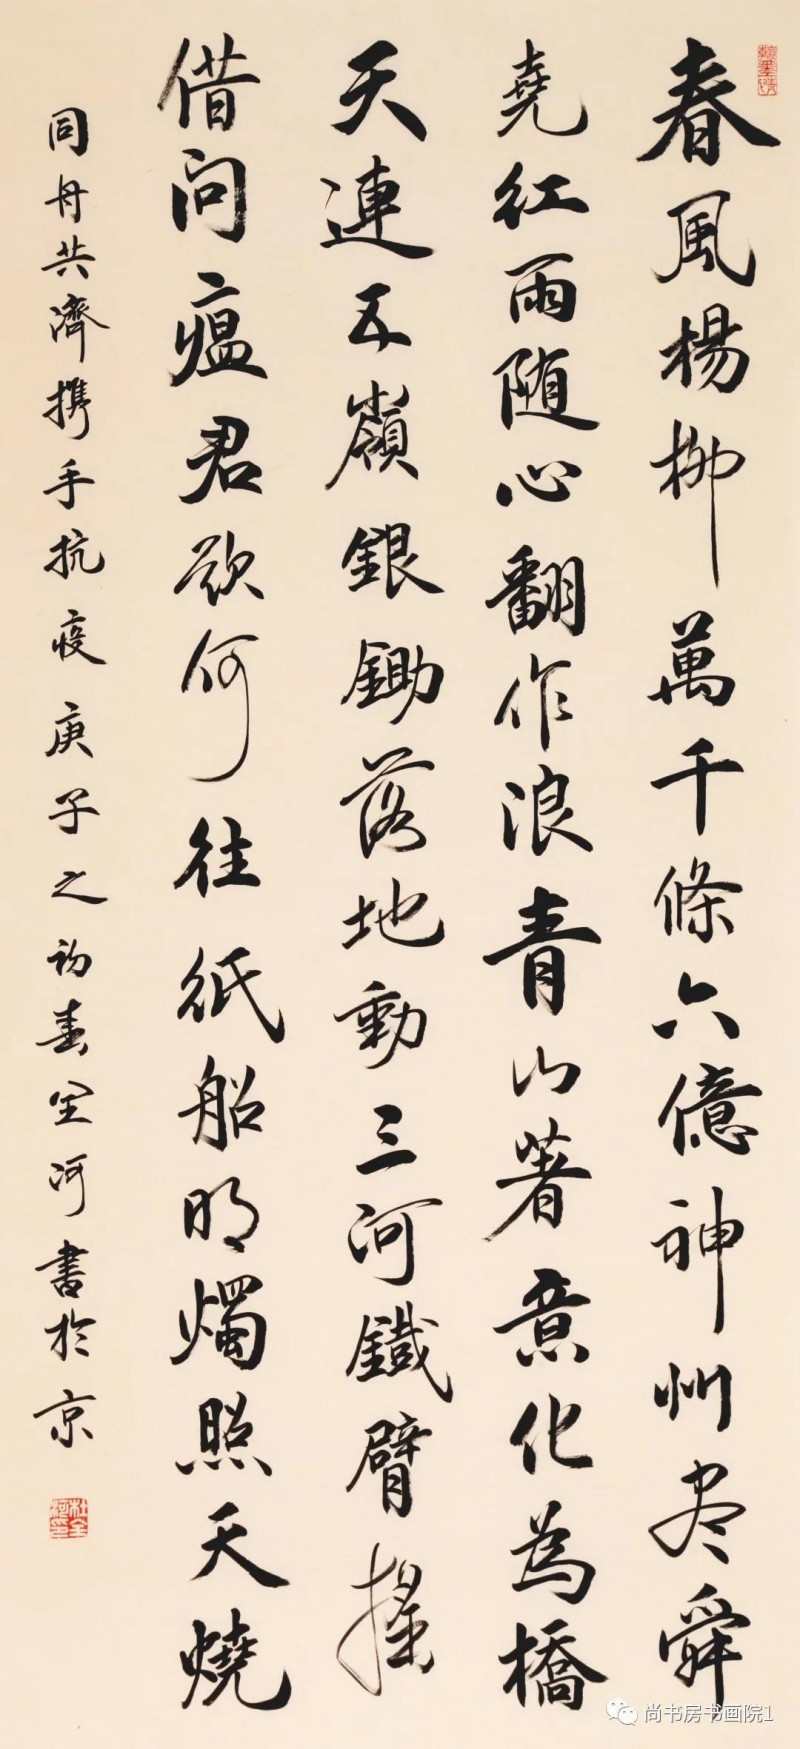 翰墨情
春風楊柳萬千條六億神州尽舜
堯紅雨随心翻作浪青山著意化為橋
天連五嶺銀鋤落地動三河鐵臂摇
借问瘟君欲何往紙船明燭照天燒
同舟共濟携手抗疫庚子之初春全河書於京
尚书房书画院1